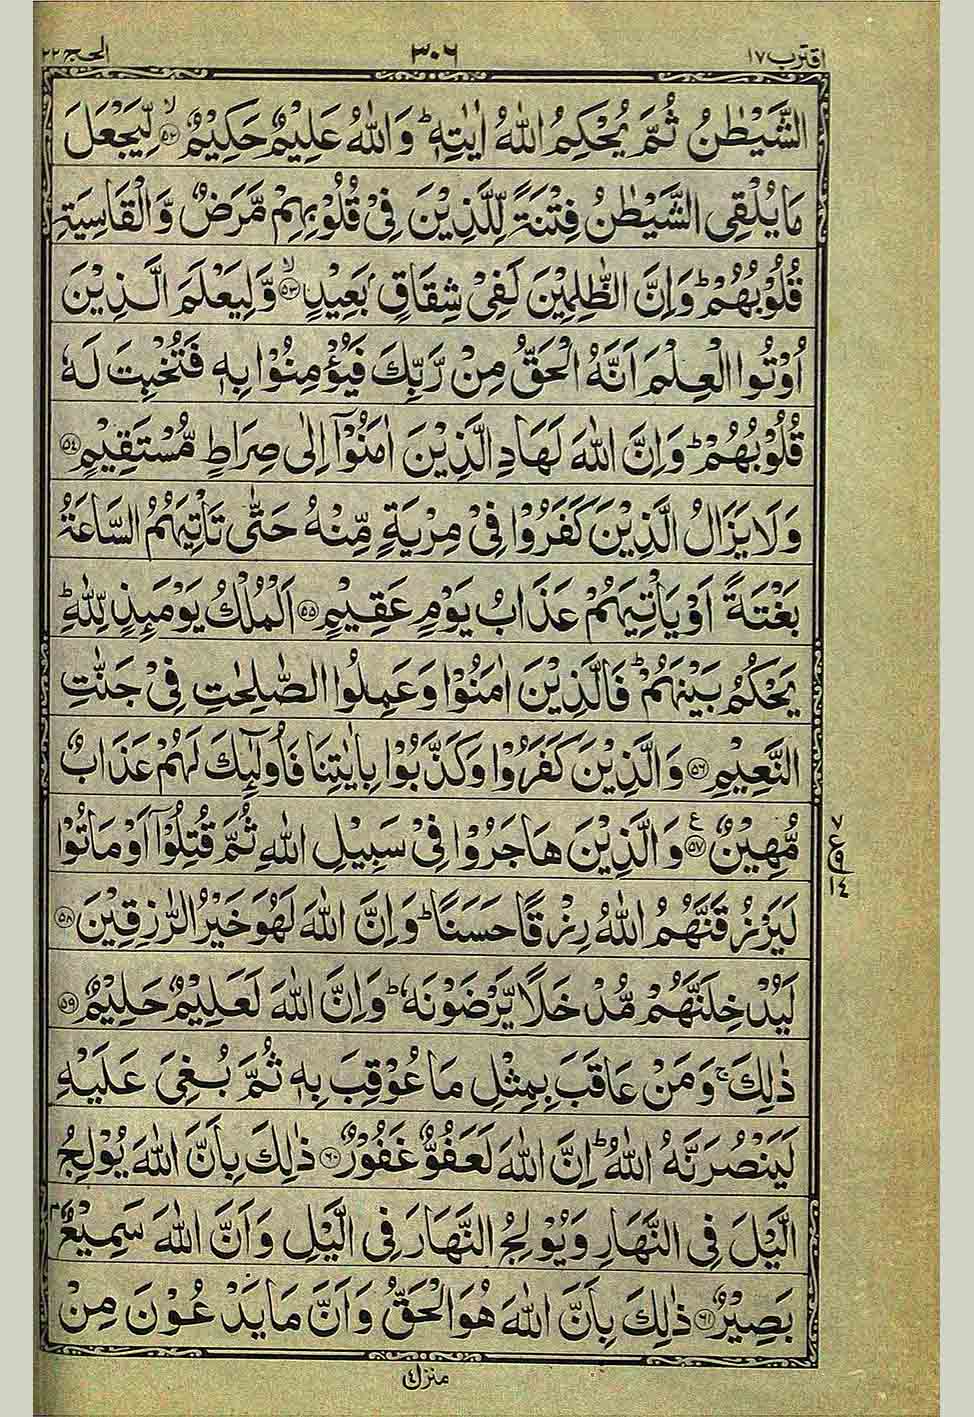 اقترب ١٧
٣٠٦
الحج ٢٢
الشَّيْطٰنُ ثُمَّ يُحْكِمُ اللّٰهُ اٰيٰتِهٖ ؕ وَاللّٰهُ عَلِيْمٌ حَكِيْمٌ ۙ‏﴿۵۲﴾ لِّيَجْعَلَ
مَا يُلْقِى الشَّيْطٰنُ فِتْنَةً لِّلَّذِيْنَ فِىْ قُلُوْبِهِمْ مَّرَضٌ وَّالْقَاسِيَةِ
قُلُوْبُهُمْ ؕ وَاِنَّ الظّٰلِمِيْنَ لَفِىْ شِقَاقٍۭ بَعِيْدٍ ۙ‏﴿۵۳﴾ وَّلِيَعْلَمَ الَّذِيْنَ
اُوْتُوا الْعِلْمَ اَنَّهُ الْحَقُّ مِنْ رَّبِّكَ فَيُؤْمِنُوْا بِهٖ فَتُخْبِتَ لَهٗ
قُلُوْبُهُمْ ؕ وَاِنَّ اللّٰهَ لَهَادِ الَّذِيْنَ اٰمَنُوْۤا اِلٰى صِرَاطٍ مُّسْتَقِيْمٍ ﴿۵٤﴾
وَلَا يَزَالُ الَّذِيْنَ كَفَرُوْا فِىْ مِرْيَةٍ مِّنْهُ حَتّٰى تَاْتِيَهُمُ السَّاعَةُ
بَغْتَةً اَوْ يَاْتِيَهُمْ عَذَابُ يَوْمٍ عَقِيْمٍ ﴿۵۵﴾ اَلْمُلْكُ يَوْمَىِٕذٍ لِّلّٰهِ ؕ
يَحْكُمُ بَيْنَهُمْ ؕ فَالَّذِيْنَ اٰمَنُوْا وَعَمِلُوا الصّٰلِحٰتِ فِىْ جَنّٰتِ
النَّعِيْمِ ﴿۵٦﴾ وَالَّذِيْنَ كَفَرُوْا وَكَذَّبُوْا بِاٰيٰتِنَا فَاُولٰٓىِٕكَ لَهُمْ عَذَابٌ
مُّهِيْنٌ ﴿۵۷﴾ ع وَالَّذِيْنَ هَاجَرُوْا فِىْ سَبِيْلِ اللّٰهِ ثُمَّ قُتِلُوْۤا اَوْ مَاتُوْا
لَيَرْزُقَنَّهُمُ اللّٰهُ رِزْقًا حَسَنًا ؕ وَاِنَّ اللّٰهَ لَهُوَ خَيْرُ الرّٰزِقِيْنَ ﴿۵۸﴾
لَيُدْخِلَنَّهُمْ مُّدْخَلًا يَّرْضَوْنَهٗ ؕ وَاِنَّ اللّٰهَ لَعَلِيْمٌ حَلِيْمٌ ﴿۵۹﴾
ذٰلِكَ ۚ وَمَنْ عَاقَبَ بِمِثْلِ مَا عُوْقِبَ بِهٖ ثُمَّ بُغِىَ عَلَيْهِ
لَيَنْصُرَنَّهُ اللّٰهُ ؕ اِنَّ اللّٰهَ لَعَفُوٌّ غَفُوْرٌ ﴿٦۰﴾ ذٰلِكَ بِاَنَّ اللّٰهَ يُوْلِجُ
الَّيْلَ فِى النَّهَارِ وَيُوْلِجُ النَّهَارَ فِى الَّيْلِ وَاَنَّ اللّٰهَ سَمِيْعٌۢ
بَصِيْرٌ ﴿٦۱﴾ ذٰلِكَ بِاَنَّ اللّٰهَ هُوَ الْحَقُّ وَاَنَّ مَا يَدْعُوْنَ مِنْ
منزل ٤